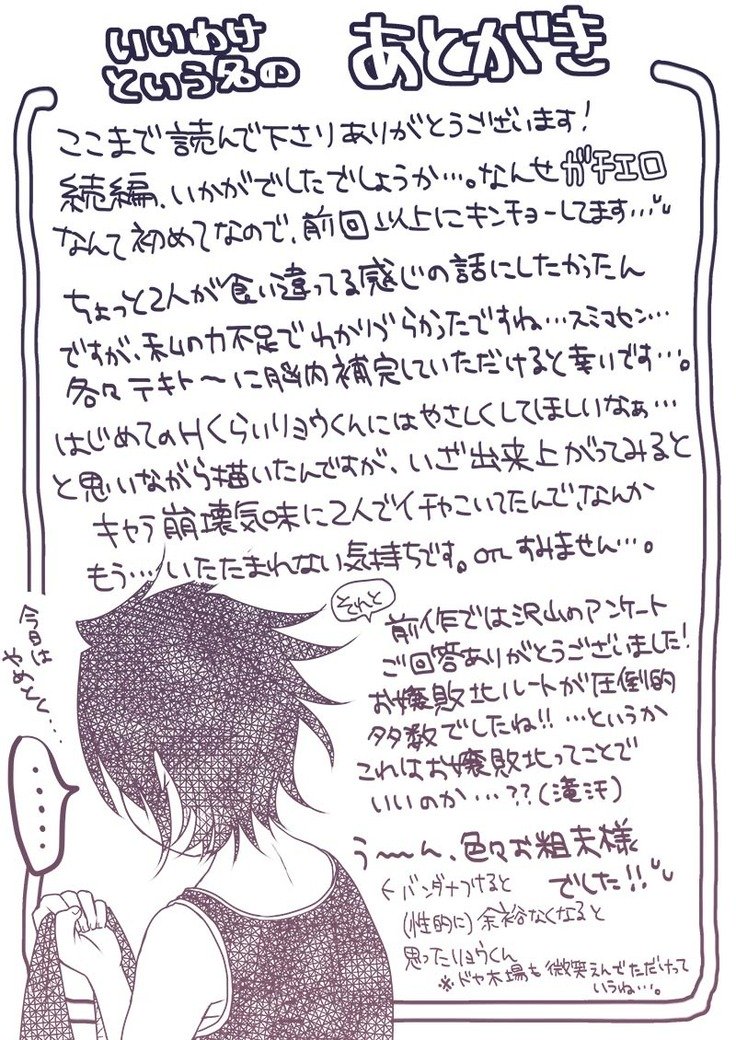 いいわけ
という名の
あとがき
ここまで読んで下さりありがとうございます!
続編、いかがでしたでしょうか…。なんせガチエロ
なんて初めてなので、前回以上にキンチョーしてます…
ちょっと2人が食い違ってる感じの話にしたかったん
ですが、私の力不足でわかりづらかったですね…スミマセン…
各々テキト〜に脳内補完していただけると幸いです…。
はじめてのHくらいリョウくんにはやさしくしてほしいなぁ…
と思いながら描いたんですが、いざ出来上がってみると
キャラ崩壊気味に2人でイチャこいてたんで、なんか
もう…いたたまれない気持ちです。orz すみません…。
それと
前作では沢山のアンケート
ご回答ありがとうございました!
お嬢敗北ルートが圧倒的
多数でしたね!!…というか
これはお嬢敗北ってことで
いいのか…??(滝汗)
う〜ん、色々お粗末様
でした!!
今日は
やめとく…
……
←バンダナつけると
(性的に)余裕なくなると
思ったリョウくん
※ドヤ木場も微笑えんでただけって
いうね…。